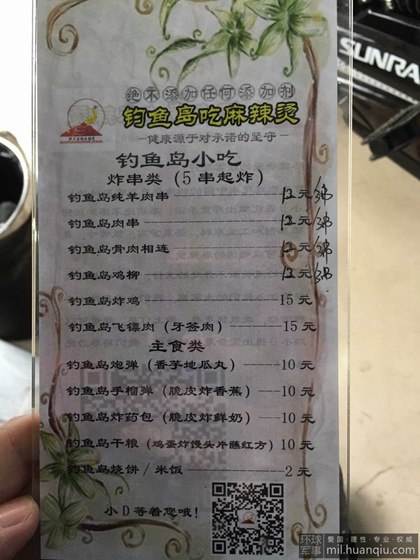 SUNRA
绝不添加任何添加剂
钓鱼岛吃麻辣烫
—健康源于对承诺的坚守—
钓鱼岛小吃
炸串类（5串起炸）
钓鱼岛纯羊肉串 12元/3串
钓鱼岛肉串 12元/3串
钓鱼岛骨肉相连 12元/3串
钓鱼岛鸡柳 12元/3串
钓鱼岛炸鸡 15元
钓鱼岛飞镖肉（牙签肉） 15元
主食类
钓鱼岛炮弹（香芋地瓜丸） 10元
钓鱼岛手榴弹（脆皮炸香蕉） 10元
钓鱼岛炸药包（脆皮炸鲜奶） 10元
钓鱼岛干粮（鸡蛋炸馒头片蘸红方） 10元
钓鱼岛烧饼/米饭 2元
小D等着您哦！
环球军事
爱国·理性·专业·权威
mil.huanqiu.com